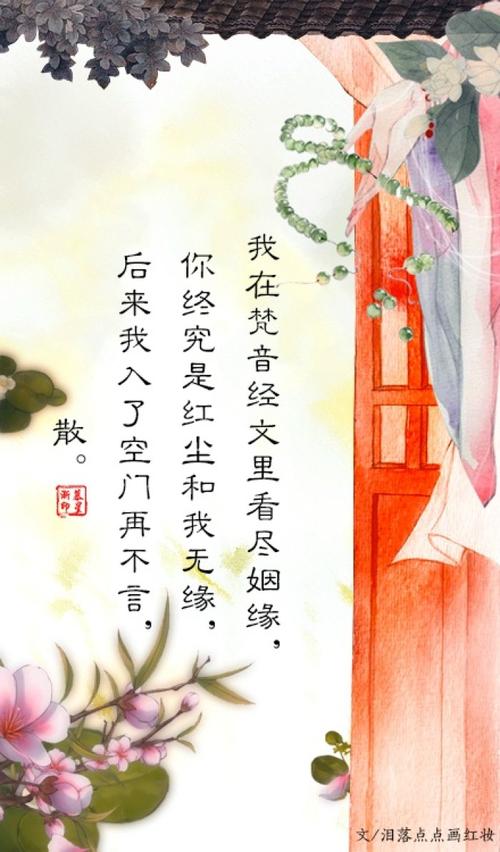 我在梵音经文里看尽姻缘，
你终究是红尘和我无缘，
后来我入了空门再不言，
散。
文/泪落点点画红妆